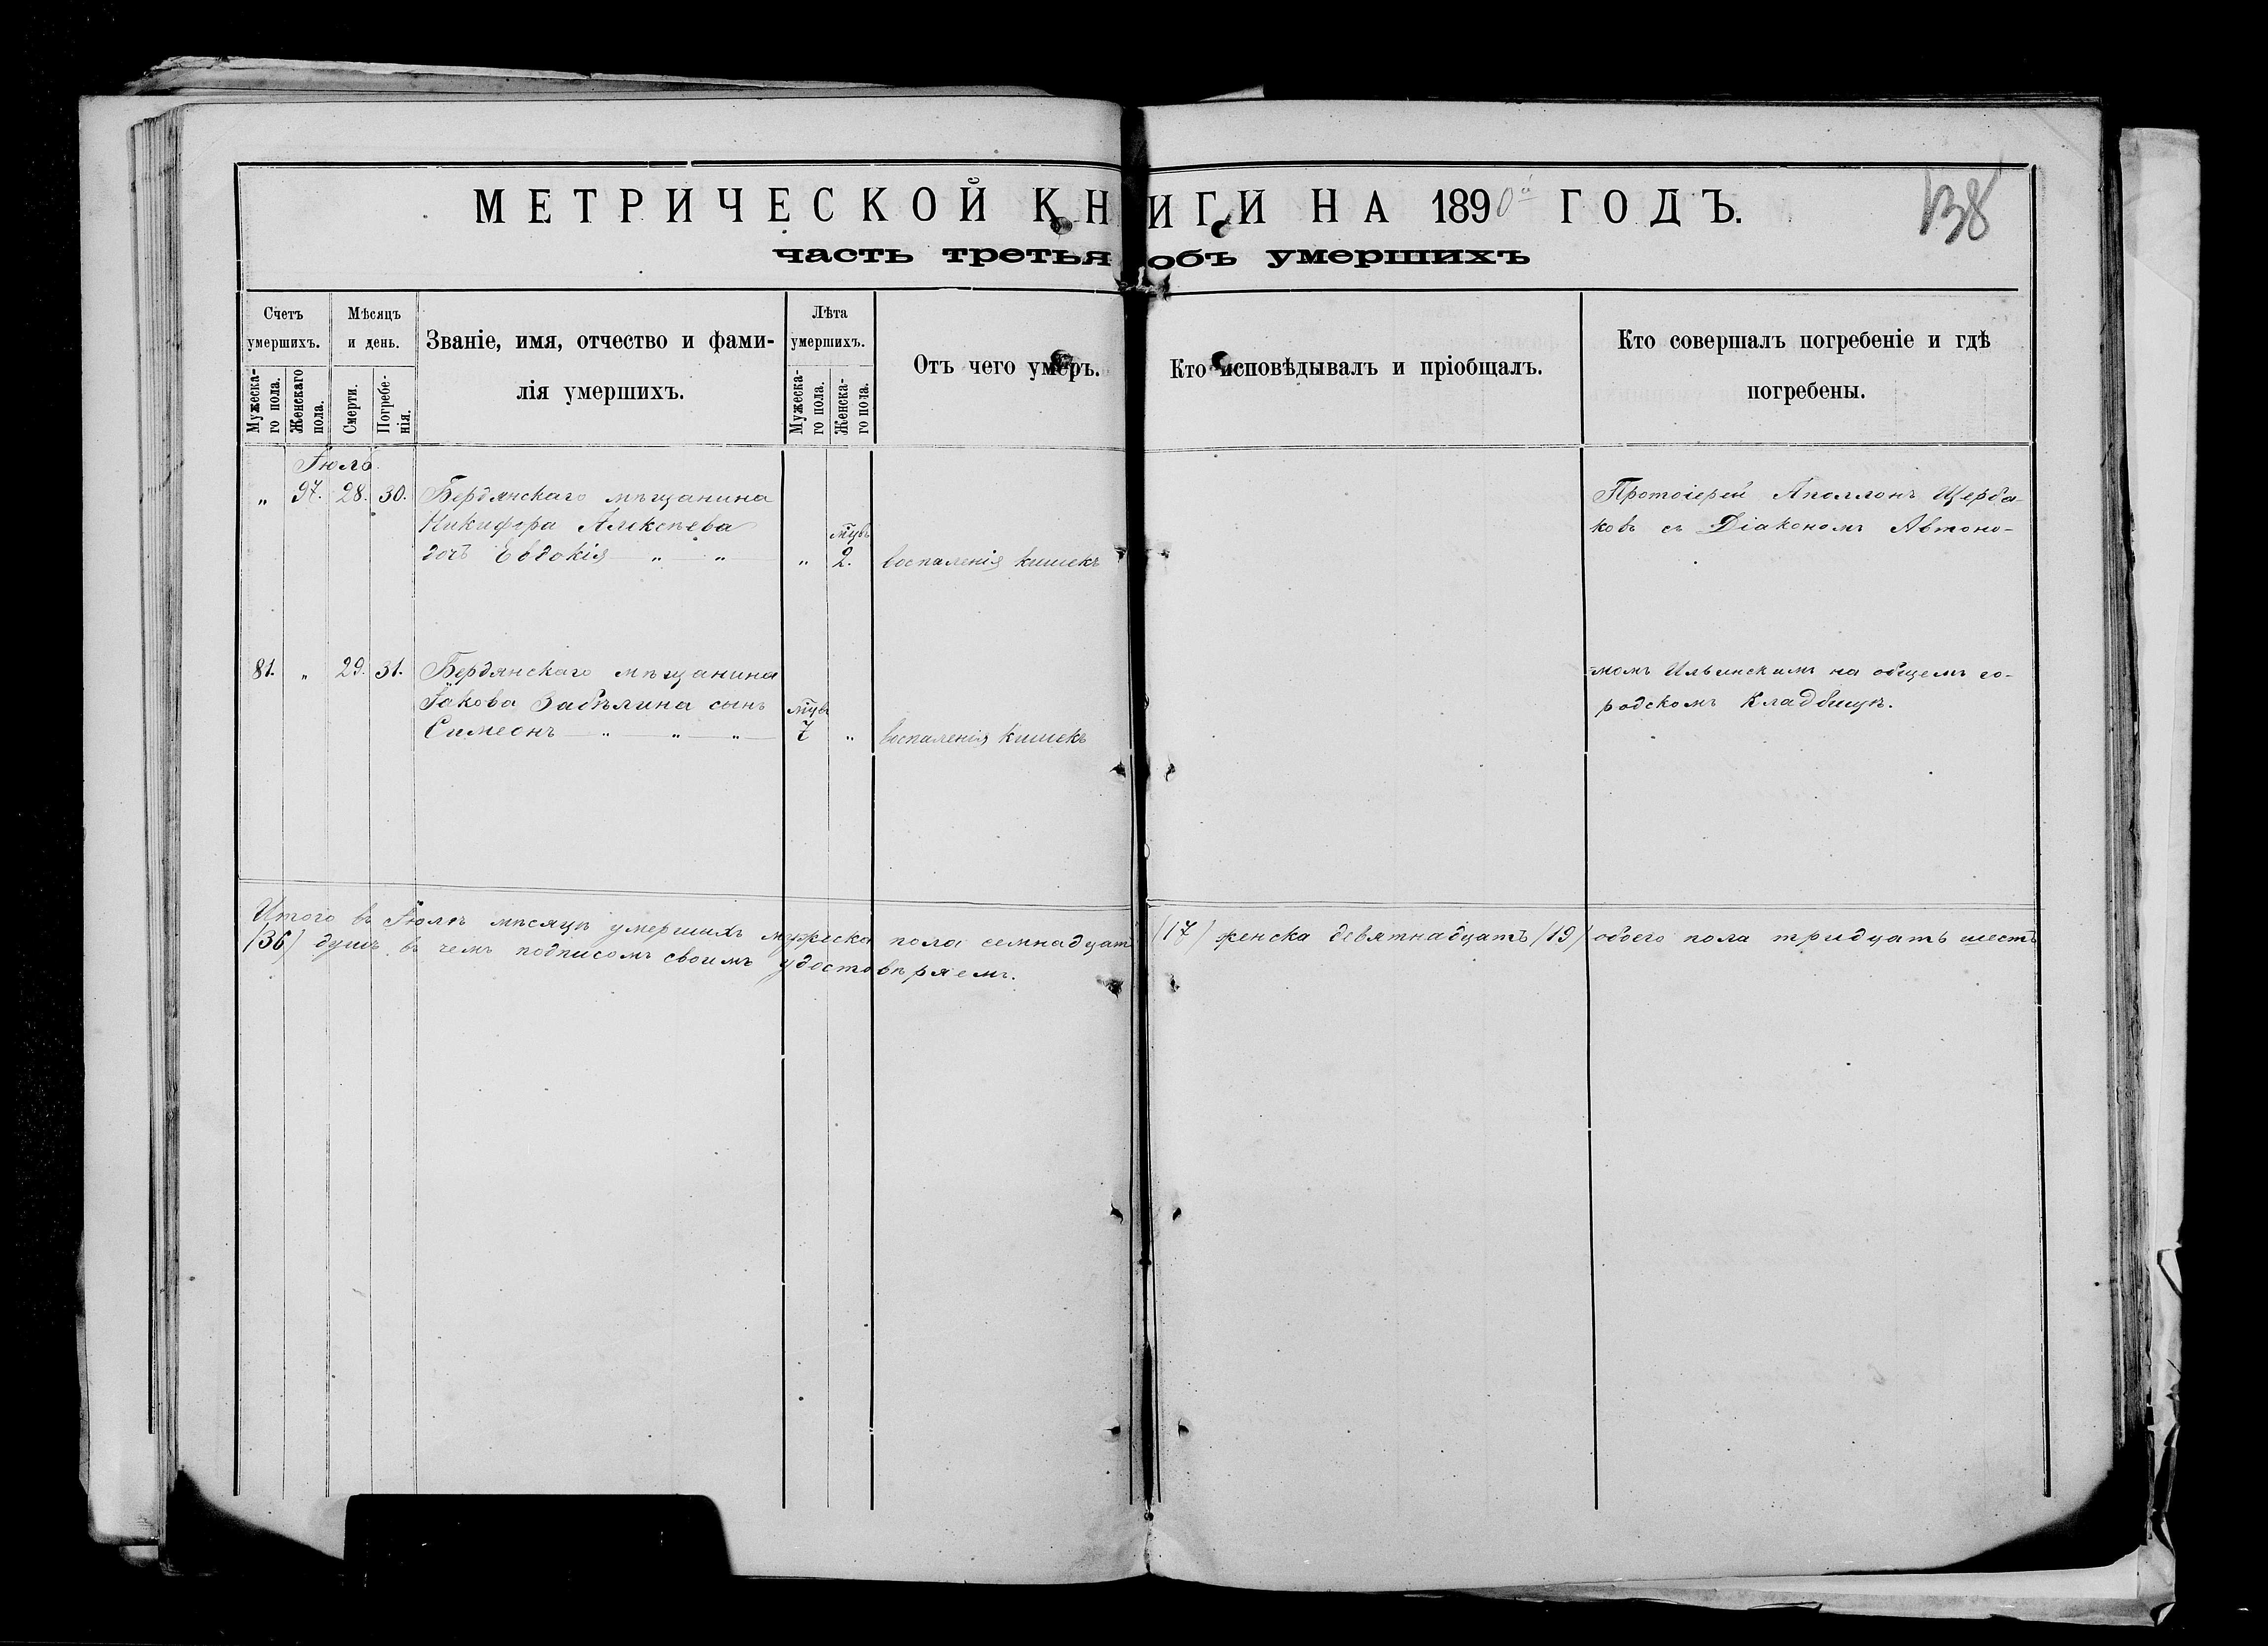 МЕТРИЧЕСКОЙ КНИГИ НА 1890й ГОДЪ.
138
часть третья объ умершихъ
Счетъ умершихъ.
Мужеска-го пола.
Женскаго пола.
Мѣсяцъ и день.
Смерти.
Погребе-нія.
Званіе, имя, отчество и фами-
лія умершихъ.
Лѣта умершихъ.
Мужеска-го пола.
Женска-го пола.
Отъ чего умеръ.
Кто исповѣдывалъ и пріобщалъ.
Кто совершалъ погребеніе и гдѣ
погребены.
Іюль
„ 97. 28. 30. Бердянскаго мѣщанина
Никифора Алексѣева
дочь Евдокія „ „ „ 2. воспаленія кишекъ
Протоіерей Аполлонъ Щерба-
ковъ съ Діакономъ Автоно-
81. „ 29. 31. Бердянскаго мѣщанина
Іакова Забѣлина сынъ
Симеонъ „ „ „ 7 „ воспаленія кишекъ
момъ Ильинскимъ на общемъ го-
родскомъ Кладбищѣ.
Итого въ Іюлѣ мѣсяцѣ умершихъ мужеска пола семнадцать (17) женска девятнадцать (19) обоего пола тридцать шесть
(36) душъ, въ чемъ подписомъ своимъ удостовѣряемъ.